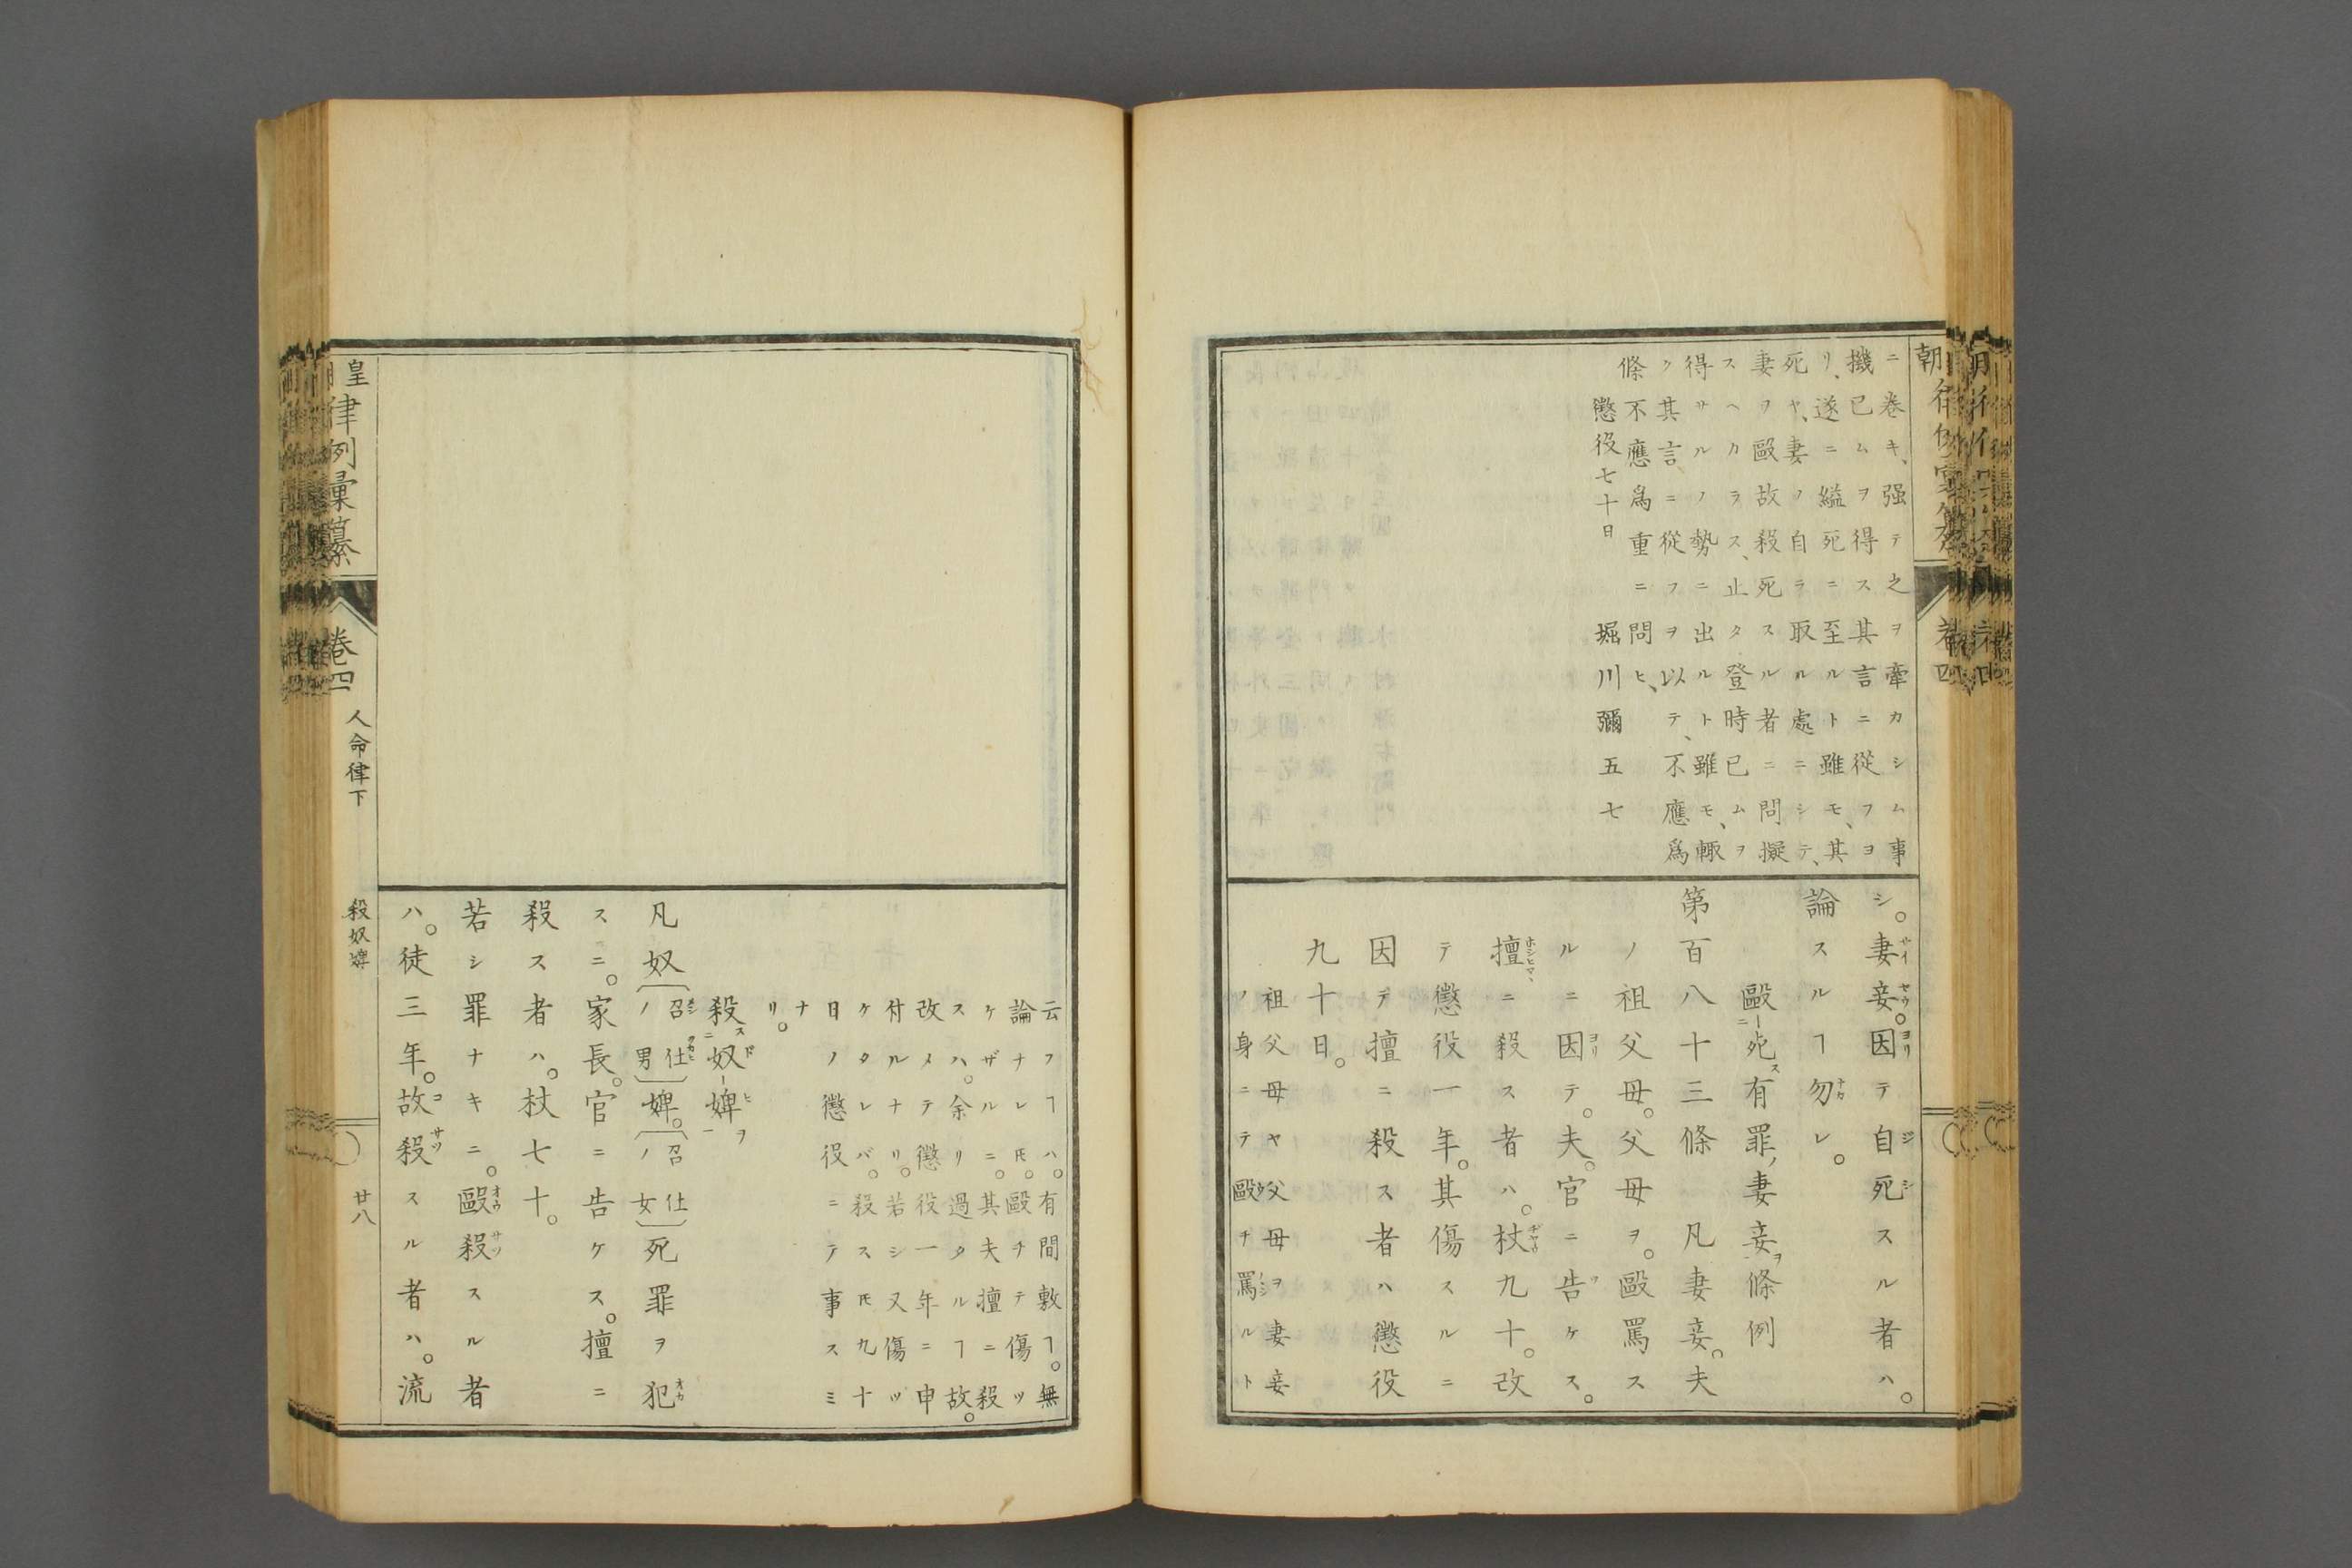 ニ巻キ、强テ之ヲ牽カシム事
機已ムヲ得ス其言ニ從フヨ
リ、遂ニ縊死ニ至ルト雖モ、其
死ヤ、妻ノ自ラ取ル處ニシテ、
妻ヲ毆故殺死スル者ニ問擬
スヘカラス、止タ登時已ムヲ
得サルノ勢ニ出ルト雖モ、輙
ク其言ニ從フヲ以テ、不應爲
條不應爲重ニ問ヒ、
懲役七十日 堀川彌五七
シ。妻妾。因テ自死スル者ハ。
論スルヿ勿レ。
毆死有罪妻妾條例
第百八十三條 凡妻妾。夫
ノ祖父母。父母ヲ。毆罵ス
ルニ因テ。夫。官ニ告ケス。
擅ニ殺ス者ハ。杖九十。改
テ懲役一年。其傷スルニ
因テ擅ニ殺ス者ハ懲役
九十日。
祖父母ヤ父母ヲ妻妾
ノ身ニテ毆チ罵ルト
皇朝律例彙纂 卷四 人命律下 殺奴婢 廿八
云フヿハ。有間敷ヿ。無
論ナレ𪜈。毆チテ傷ツ
ケザルニ。其夫擅ニ殺
スハ。余リ過タルヿ故。
改メテ懲役一年ニ申
付ルナリ。若シ又傷ツ
ケタレバ。殺ス𪜈九十
日ノ懲役ニテ事スミ
ナリ。
殺奴婢
凡奴〔召仕ノ男〕婢。〔召仕ノ女〕死罪ヲ犯
スニ。家長。官ニ告ケス。擅ニ
殺ス者ハ。杖七十。
若シ罪ナキニ。毆殺スル者
ハ。徒三年。故殺スル者ハ。流